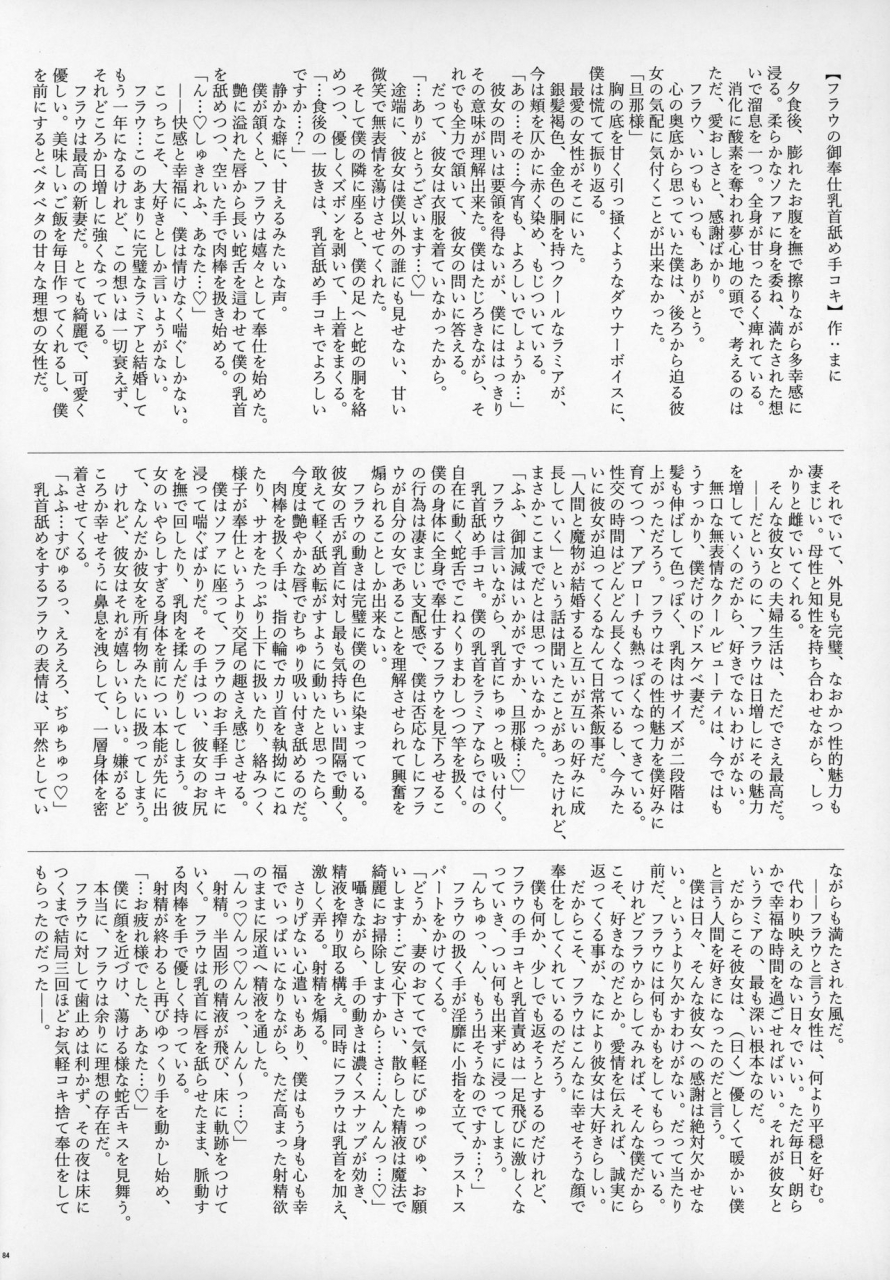 【フラウの御奉仕乳首舐め手コキ】作：まに
　夕食後、膨れたお腹を撫で擦りながら多幸感に
浸る。柔らかなソファに身を委ね、満たされた想
いで溜息を一つ。全身が甘ったるく痺れている。
　消化に酸素を奪われ夢心地の頭で、考えるのは
ただ、愛おしさと、感謝ばかり。
　フラウ、いつもいつも、ありがとう。
　心の奥底から思っていた僕は、後ろから迫る彼
女の気配に気付くことが出来なかった。
「旦那様」
　胸の底を甘く引っ掻くようなダウナーボイスに、
僕は慌てて振り返る。
　最愛の女性がそこにいた。
　銀髪褐色、金色の胴を持つクールなラミアが、
今は頬を仄かに赤く染め、もじついている。
「あの…その…今宵も、よろしいでしょうか…」
　彼女の問いは要領を得ないが、僕にははっきり
その意味が理解出来た。僕はたじろぎながら、そ
れでも全力で頷いて、彼女の問いに答える。
　だって、彼女は衣服を着ていなかったから。
「…ありがとうございます…♡」
　途端に、彼女は僕以外の誰にも見せない、甘い
微笑で無表情を蕩けさせてくれた。
　そして僕の隣に座ると、僕の足へと蛇の胴を絡
めつつ、優しくズボンを剥いて、上着をまくる。
「…食後の一抜きは、乳首舐め手コキでよろしい
ですか…？」
　静かな癖に、甘えるみたいな声。
　僕が頷くと、フラウは嬉々として奉仕を始めた。
　艶に溢れた唇から長い蛇舌を這わせて僕の乳首
を舐めつつ、空いた手で肉棒を扱き始める。
「ん…♡しゅきれふ、あなた…♡」
　――快感と幸福に、僕は情けなく喘ぐしかない。
　こっちこそ、大好きとしか言いようがない。
　フラウ…このあまりに完璧なラミアと結婚して
もう一年になるけれど、この想いは一切衰えず、
それどころか日増しに強くなっている。
　フラウは最高の新妻だ。とても綺麗で、可愛く
優しい。美味しいご飯を毎日作ってくれるし、僕
を前にするとベタベタの甘々な理想の女性だ。
　それでいて、外見も完璧、なおかつ性的魅力も
凄まじい。母性と知性を持ち合わせながら、しっ
かりと雌でいてくれる。
　そんな彼女との夫婦生活は、ただでさえ最高だ。
　――だというのに、フラウは日増しにその魅力
を増していくのだから、好きでないわけがない。
　無口な無表情なクールビューティは、今ではも
うすっかり、僕だけのドスケベ妻だ。
　髪も伸ばして色っぽく、乳肉はサイズが二段階は
上がっただろう。フラウはその性的魅力を僕好みに
育てつつ、アプローチも熱っぽくなってきている。
　性交の時間はどんどん長くなっているし、今みた
いに彼女が迫ってくるなんて日常茶飯事だ。
「人間と魔物が結婚すると互いが互いの好みに成
長していく」という話は聞いたことがあったけれど、
まさかここまでだとは思っていなかった。
「ふふ、御加減はいかがですか、旦那様…♡」
　フラウは言いながら、乳首にちゅっと吸い付く。
　乳首舐め手コキ。僕の乳首をラミアならではの
自在に動く蛇舌でこねくりまわしつつ竿を扱く。
　僕の身体に全身で奉仕するフラウを見下ろせるこ
の行為は凄まじい支配感で、僕は否応なしにフラ
ウが自分の女であることを理解させられて興奮を
煽られることしか出来ない。
　フラウの動きは完璧に僕の色に染まっている。
　彼女の舌が乳首に対し最も気持ちいい間隔で動く。
　敢えて軽く舐め転がすように動いたと思ったら、
今度は艶やかな唇でむちゅり吸い付き舐めるのだ。
　肉棒を扱く手は、指の輪でカリ首を執拗にこね
たり、サオをたっぷり上下に扱いたり、絡みつく
様子が奉仕というより交尾の趣さえ感じさせる。
　僕はソファに座って、フラウのお手軽手コキに
浸って喘ぐばかりだ。その手はつい、彼女のお尻
を撫で回したり、乳肉を揉んだりしてしまう。彼
女のいやらしすぎる身体を前につい本能が先に出
て、なんだか彼女を所有物みたいに扱ってしまう。
　けれど、彼女はそれが嬉しいらしい。嫌がるど
ころか幸せそうに鼻息を洩らして、一層身体を密
着させてくる。
「ふふ…すぴゅるっ、えろえろ、ぢゅちゅっ♡」
　乳首舐めをするフラウの表情は、平然としてい
ながらも満たされた風だ。
　――フラウと言う女性は、何より平穏を好む。
　代わり映えのない日々でいい。ただ毎日、朗ら
かで幸福な時間を過ごせればいい。それが彼女と
いうラミアの、最も深い根本なのだ。
　だからこそ彼女は、（曰く）優しくて暖かい僕
と言う人間を好きになったのだと言う。
　僕は日々、そんな彼女への感謝は絶対欠かせな
い。というより欠かすわけがない。だって当たり
前だ、フラウには何もかもをしてもらっている。
　けれどフラウからしてみれば、そんな僕だから
こそ、好きなのだとか。愛情を伝えれば、誠実に
返ってくる事が、なにより彼女は大好きらしい。
　だからこそ、フラウはこんなに幸せそうな顔で
奉仕をしてくれているのだろう。
　僕も何か、少しでも返そうとするのだけれど、
フラウの手コキと乳首責めは一足飛びに激しくな
っていき、つい何も出来ずに浸ってしまう。
「んちゅっ、ん、もう出そうなのですか…？」
　フラウの扱く手が淫靡に小指を立て、ラストス
パートをかけてくる。
「どうか、妻のおててで気軽にぴゅっぴゅ、お願
いします…ご安心下さい、散らした精液は魔法で
綺麗にお掃除しますから…さ…ん、んんっ…♡」
　囁きながら、手の動きは濃くスナップが効き、
精液を搾り取る構え。同時にフラウは乳首を加え、
激しく弄る。射精を煽る。
　さりげない心遣いもあり、僕はもう身も心も幸
福でいっぱいになりながら、ただ高まった射精欲
のままに尿道へ精液を通した。
「んっ♡んっ♡んんっ、んん～っ…♡」
　射精。半固形の精液が飛び、床に軌跡をつけて
いく。フラウは乳首に唇を舐らせたまま、脈動す
る肉棒を手で優しく持っている。
　射精が終わると再びゆっくり手を動かし始め、
「…お疲れ様でした、あなた…♡」
　僕に顔を近づけ、蕩ける様な蛇舌キスを見舞う。
　本当に、フラウは余りに理想の存在だ。
　フラウに対して歯止めは利かず、その夜は床に
つくまで結局三回ほどお気軽コキ捨て奉仕をして
もらったのだった――。
84